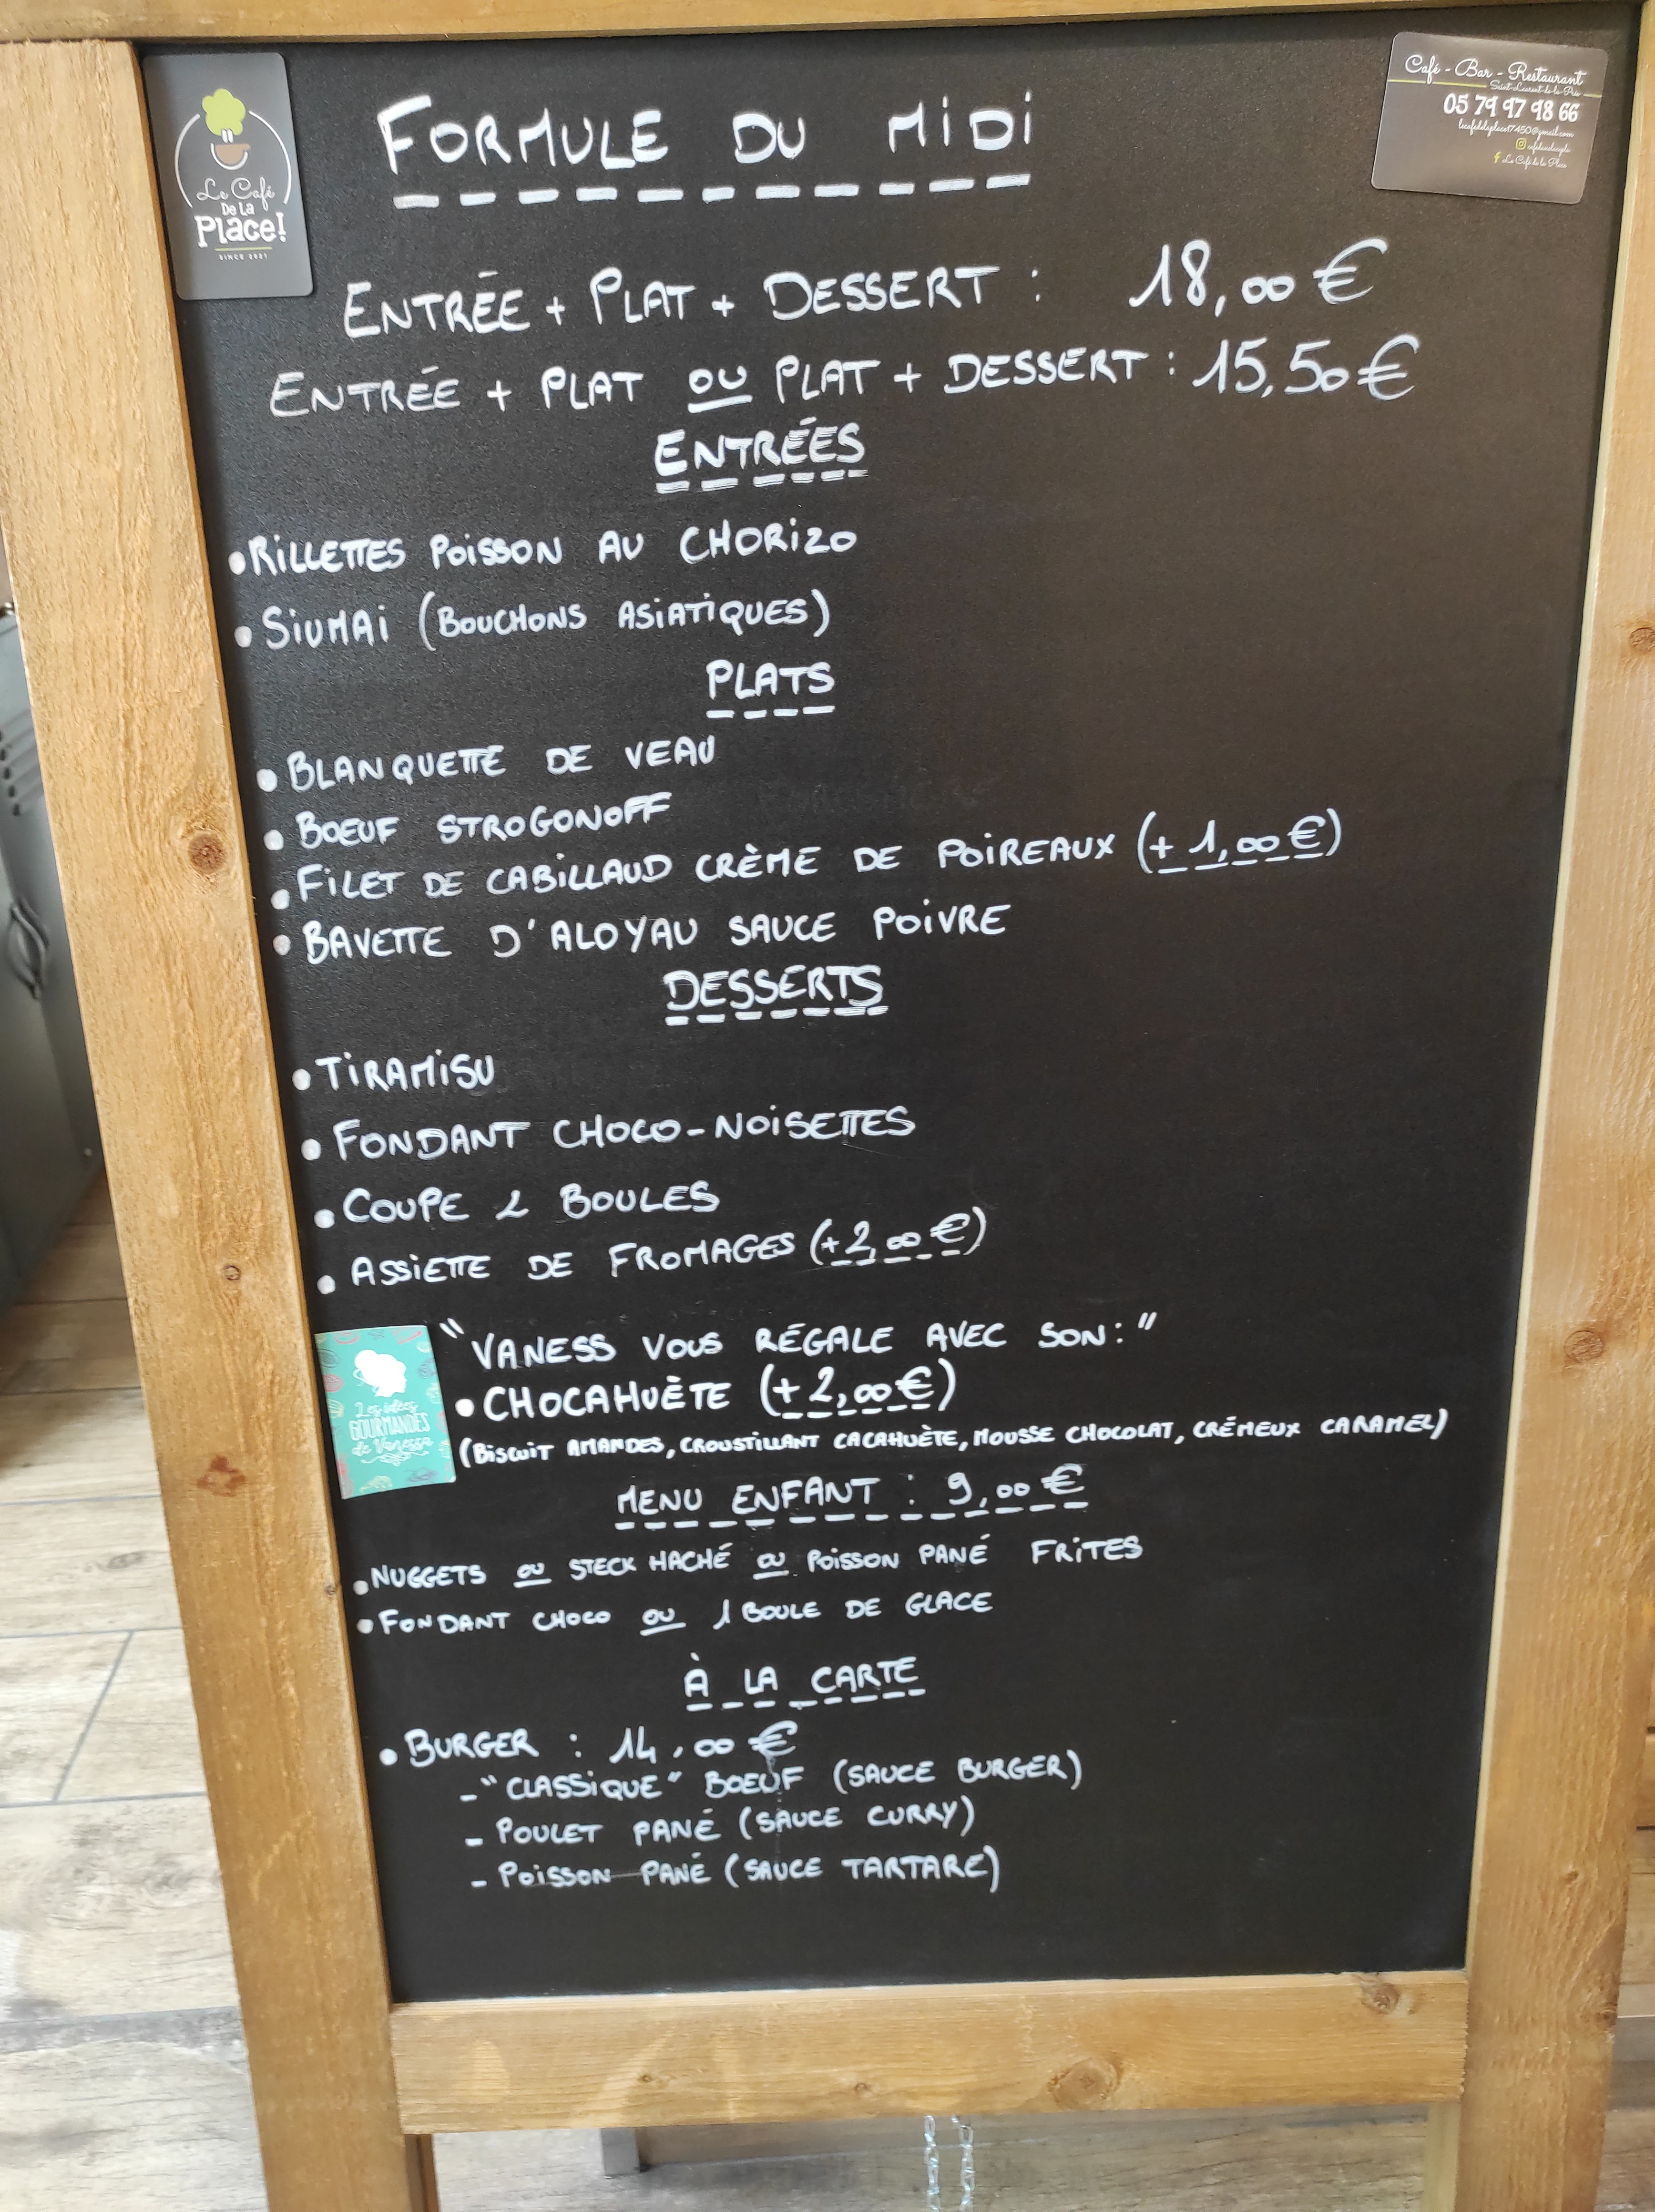 Le Café
De La
Place!
SINCE 2021
Café - Bar - Restaurant
Saint Laurent de la Prée
05 79 97 98 66
lecafedelaplace17450@gmail.com
Le Café de la Place
FORMULE DU MiDi
ENTRÉE + PLAT + DESSERT : 18,00 €
ENTRÉE + PLAT OU PLAT + DESSERT : 15,50 €
ENTRÉES
• RiLLETTES POiSSON AU CHORiZO
• SiUMAi (BOUCHONS ASiATiQUES)
PLATS
• BLANQUETTE DE VEAU
• BOEUF STROGONOFF
• FiLET DE CABiLLAUD CRÈME DE POiREAUX (+ 1,00 €)
• BAVETTE D'ALOYAU SAUCE POiVRE
DESSERTS
• TiRAMiSU
• FONDANT CHOCO-NOiSETTES
• COUPE 2 BOULES
• ASSiETTE DE FROMAGES (+2,00 €)
"VANESS VOUS RÉGALE AVEC SON:"
• CHOCAHUÈTE (+ 2,00 €)
(BiSCUiT AMANDES, CROUSTiLLANT CACAHUÈTE, MOUSSE CHOCOLAT, CRÉMEUX CARAMEL)
Les idées
GOURMANDES
de Vanessa
MENU ENFANT : 9,00 €
• NUGGETS OU STECK HACHÉ OU POiSSON PANÉ FRiTES
• FONDANT CHOCO OU 1 BOULE DE GLACE
À LA CARTE
• BURGER : 14,00 €
- "CLASSiQUE" BOEUF (SAUCE BURGER)
- POULET PANÉ (SAUCE CURRY)
- POiSSON PANÉ (SAUCE TARTARE)